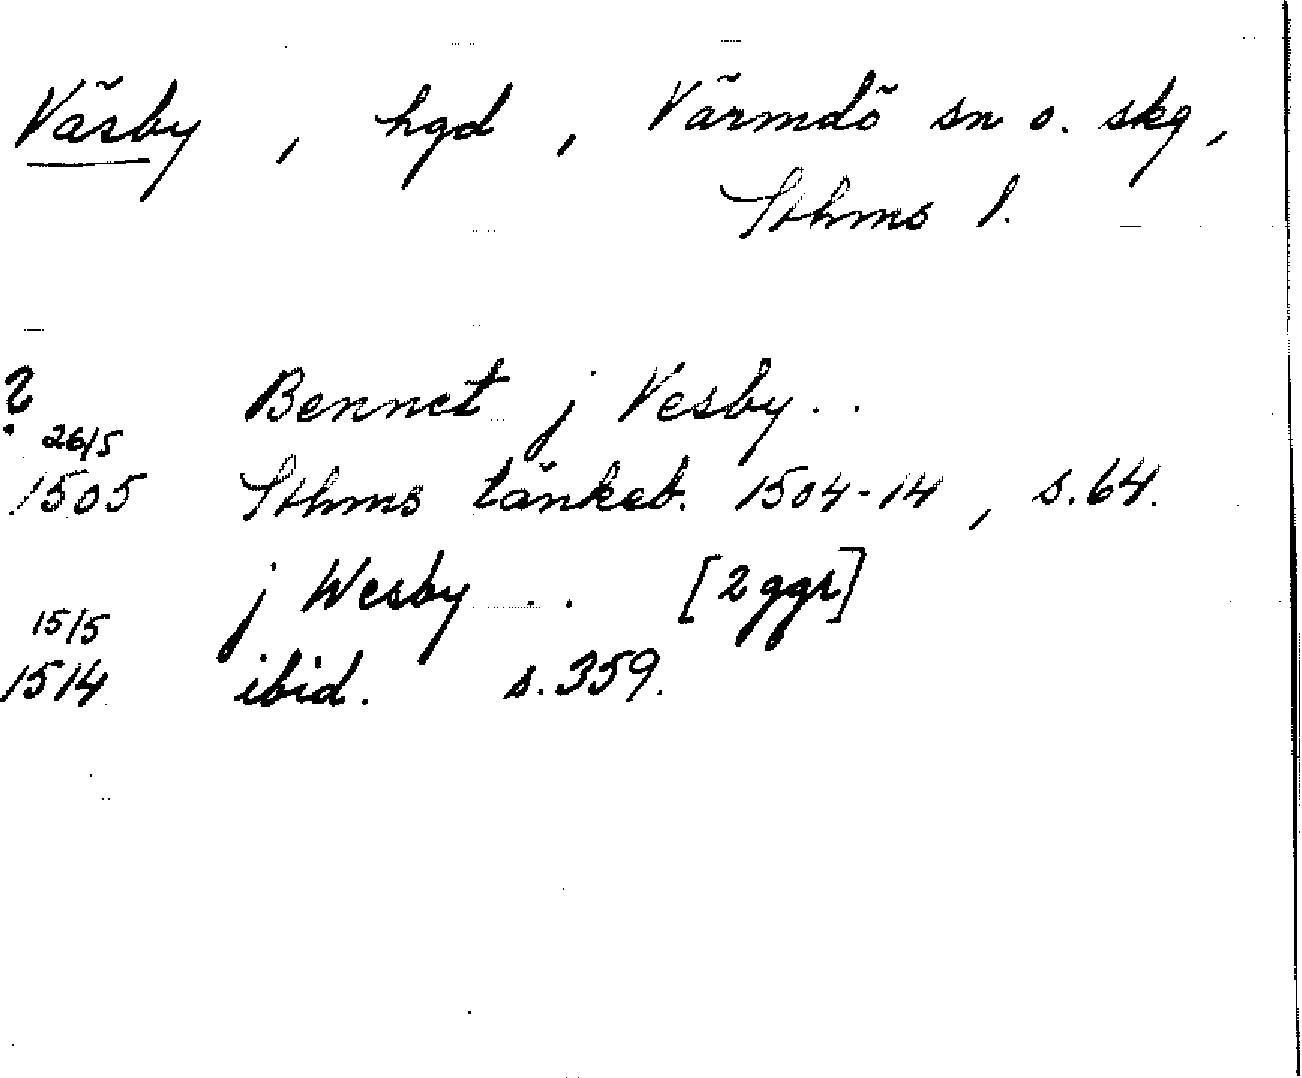 Väsby, hgd, Värmdö sn o. skg,
Sthms l.
? Bennet j Vesby..
26/5
1505 Sthms tänkeb. 1504-14, s. 64.
j Wesby .. [2 ggr]
15/5
1514 ibid. s. 359.